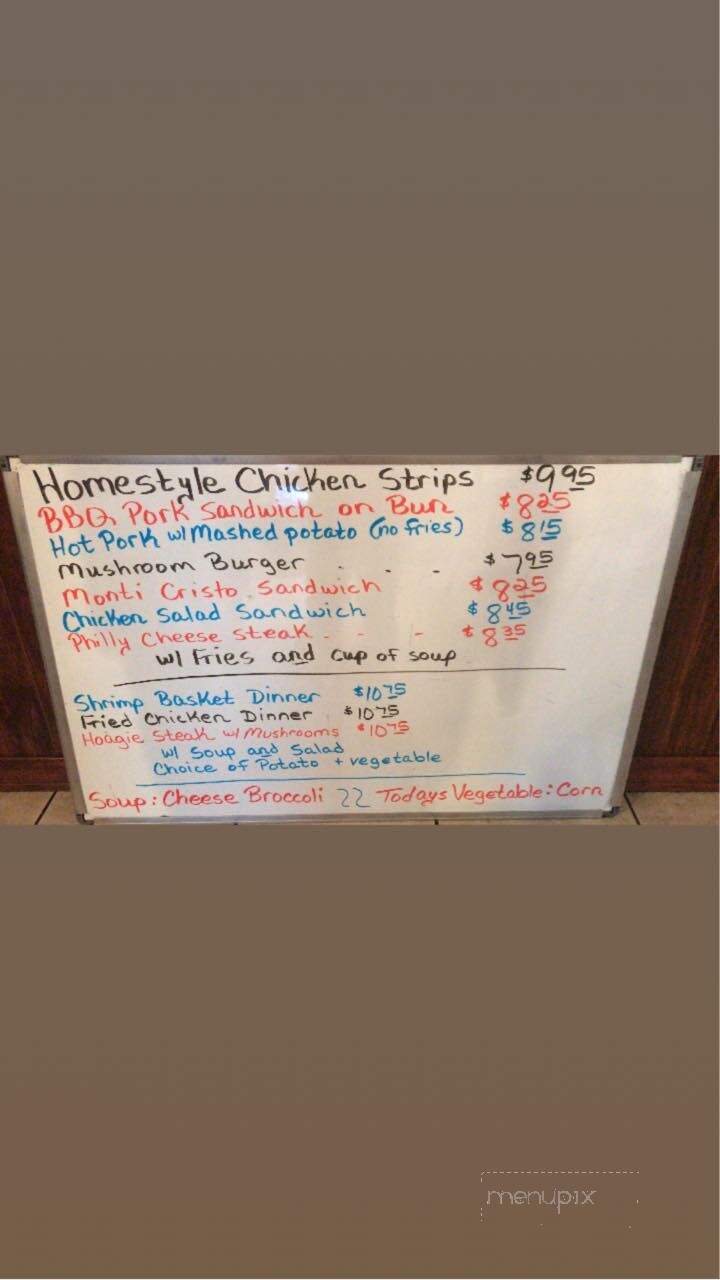 Homestyle Chicken Strips $9.95
BBQ Pork Sandwich on Bun $8.25
Hot Pork w/ Mashed potato (no fries) $8.15
Mushroom Burger . - - $7.95
Monti Cristo Sandwich $8.25
Chicken Salad Sandwich $8.45
Philly Cheese Steak - - - $8.35
w/ Fries and cup of soup
Shrimp Basket Dinner $10.75
Fried Chicken Dinner $10.75
Hoagie Steak w/ Mushrooms $10.75
w/ Soup and Salad
Choice of Potato + vegetable
Soup: Cheese Broccoli 22 Todays Vegetable: Corn
menupix